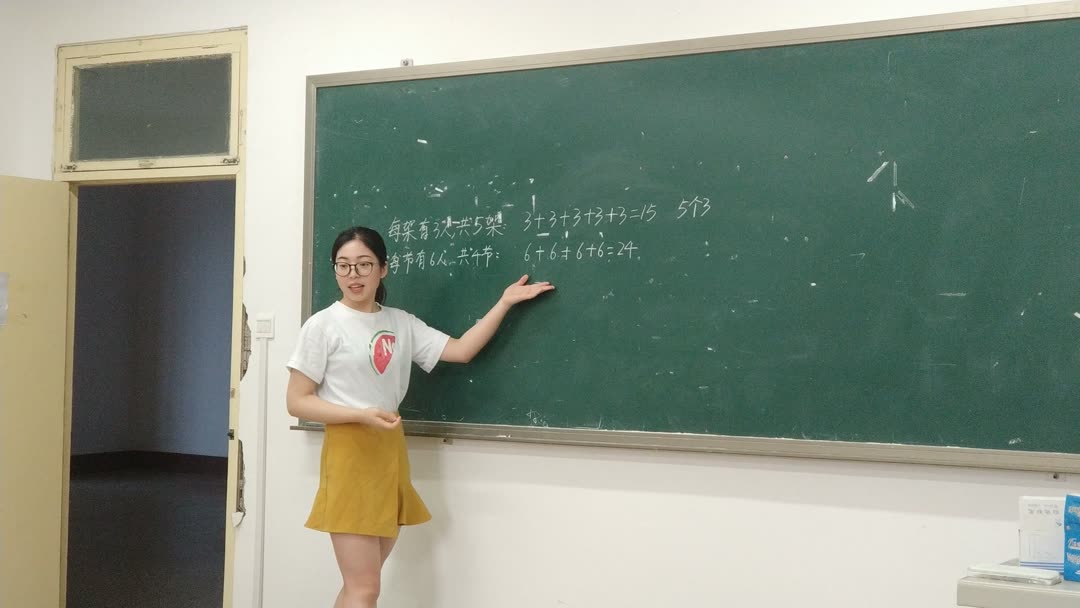 每架有3人,共5架: 3+3+3+3+3=15 5个3
每节有6人,共4节: 6+6+6+6=24